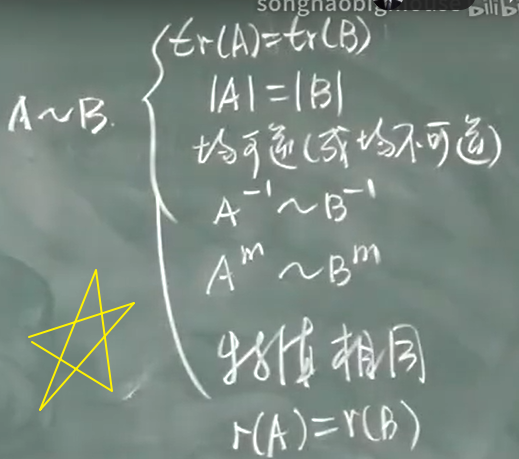 songhaobighouse bilibi
tr(A)=tr(B)
|A|=|B|
A~B.
均可逆(或均不可逆)
A⁻¹~B⁻¹
Aᵐ~Bᵐ
特值相同
r(A)=r(B)